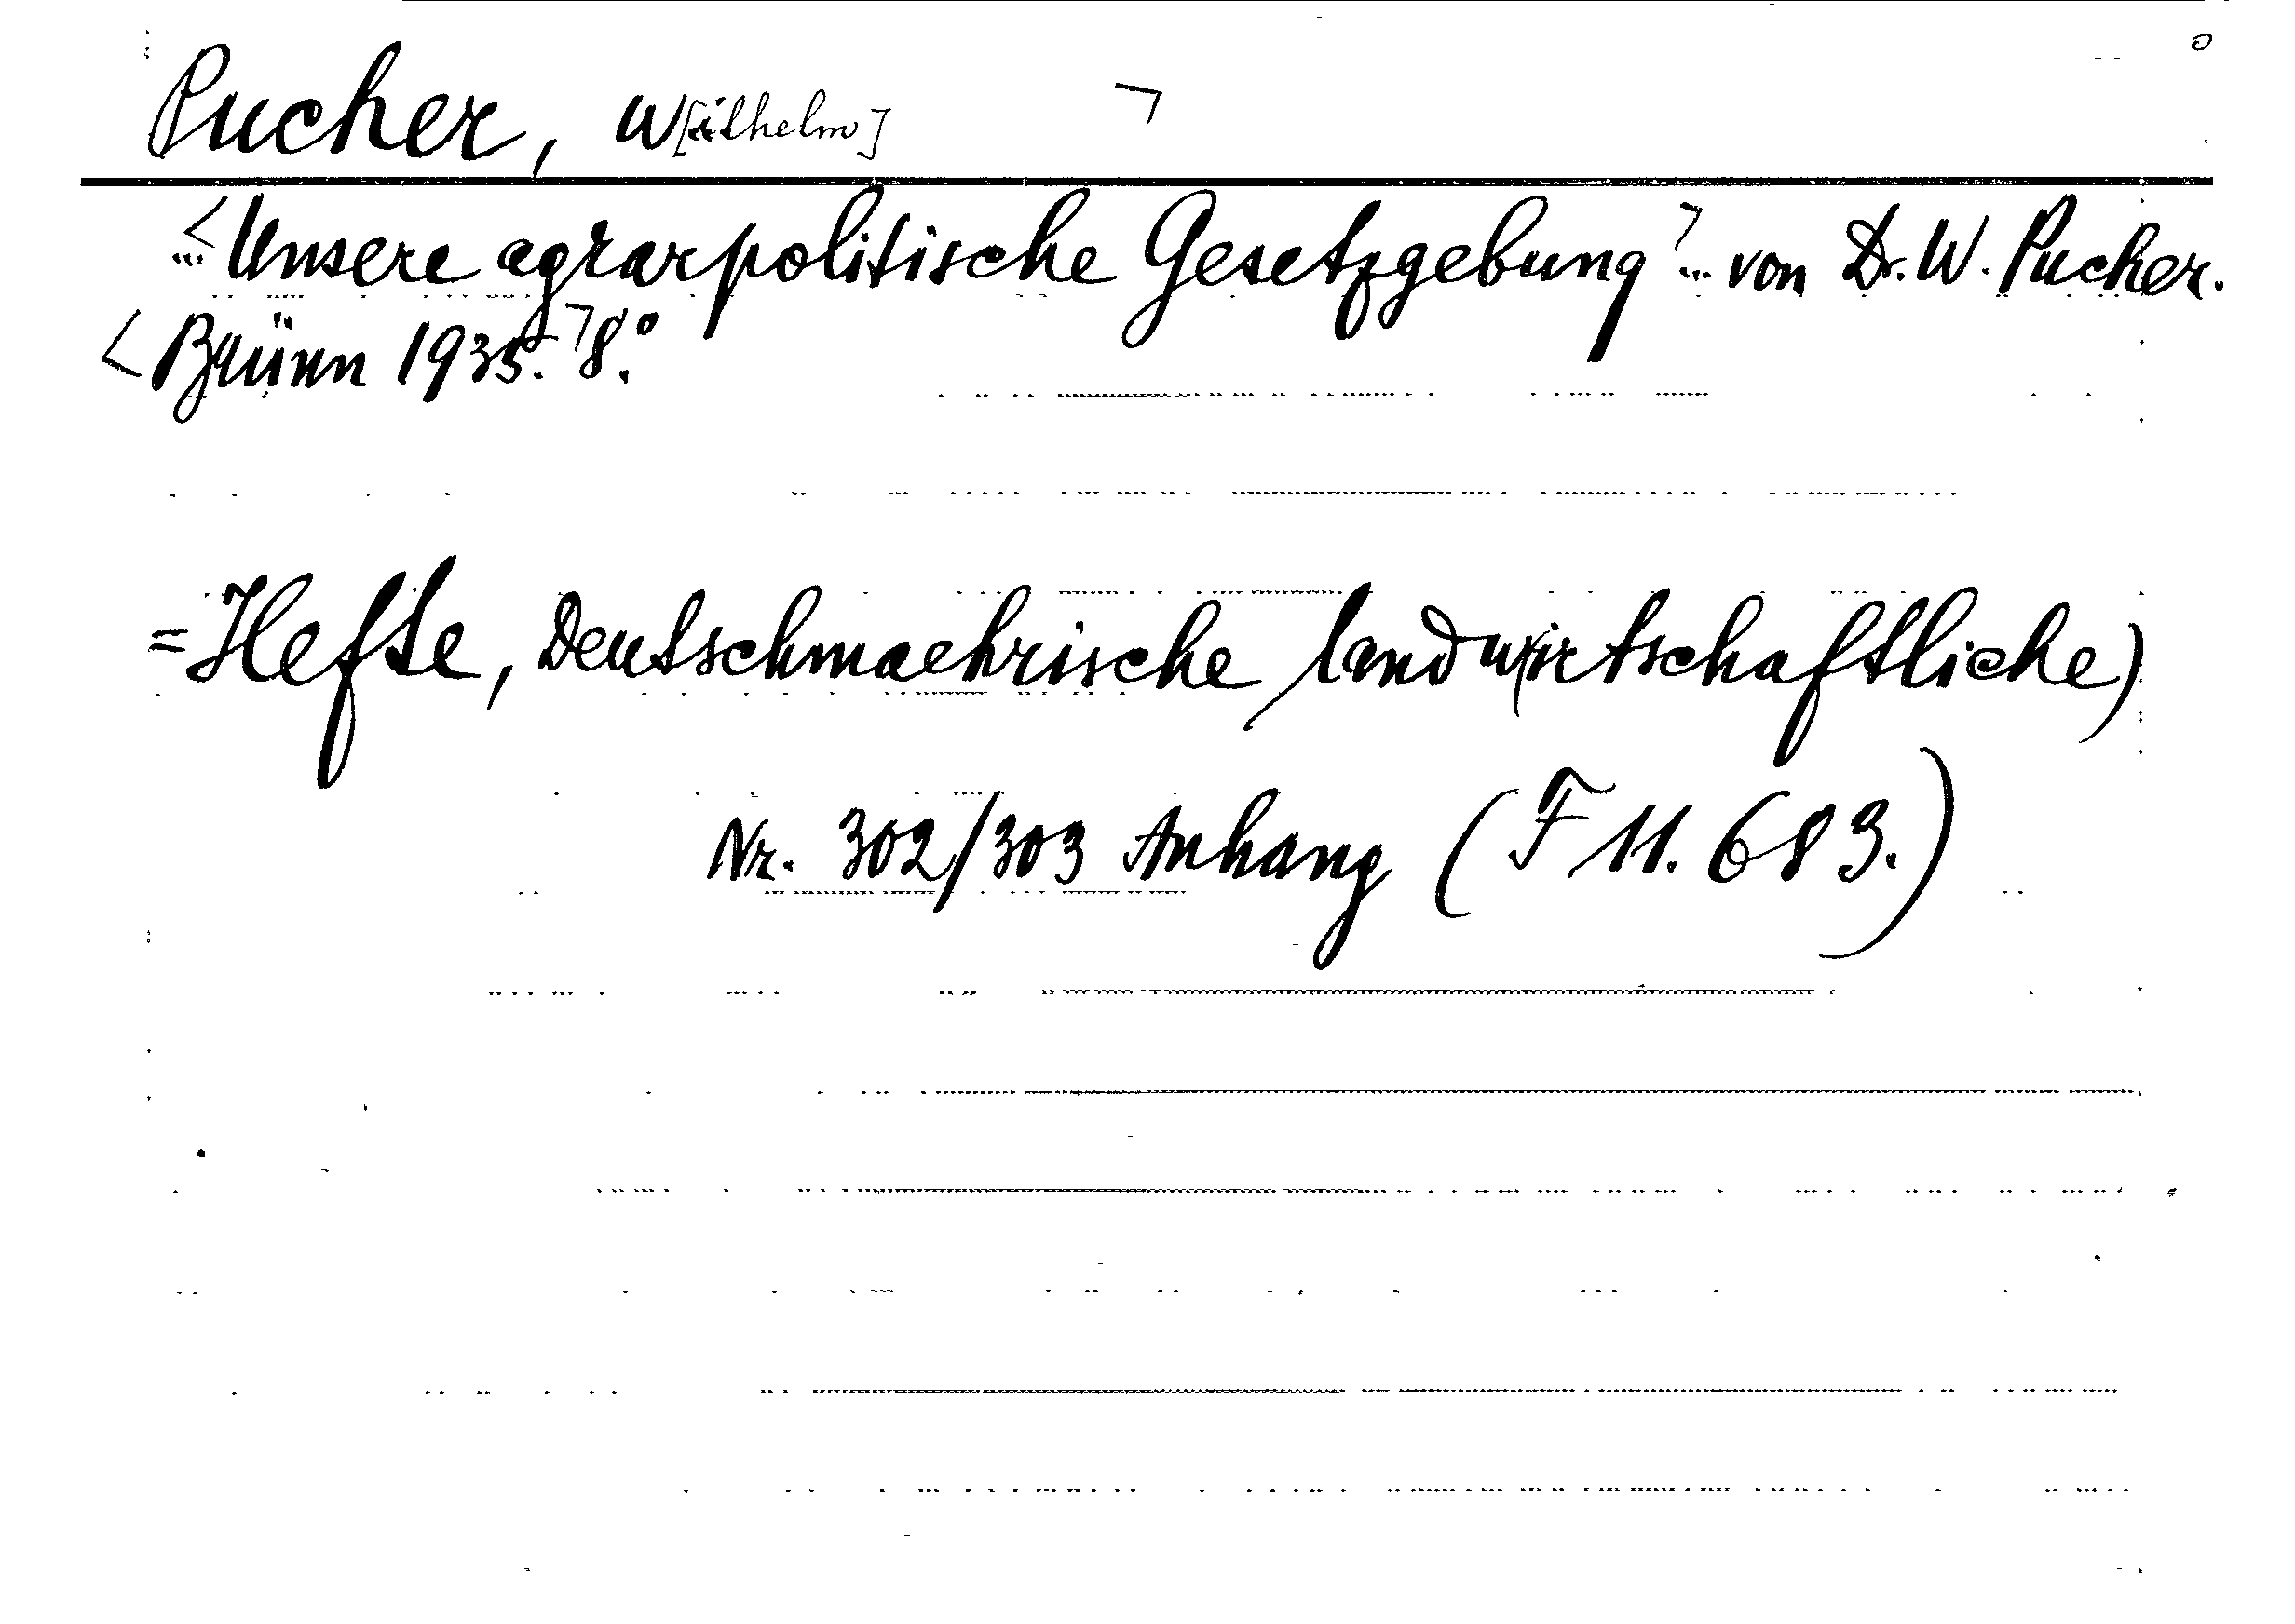 Pucher, W[ilhelm]
<"Unsere agrarpolitische Gesetzgebung" von Dr. W. Pucher.
<Brünn 1935. 8°.
=Hefte, Deutschmaehrische landwirtschaftliche)
Nr. 302/303 Anhang (F 11.683.)